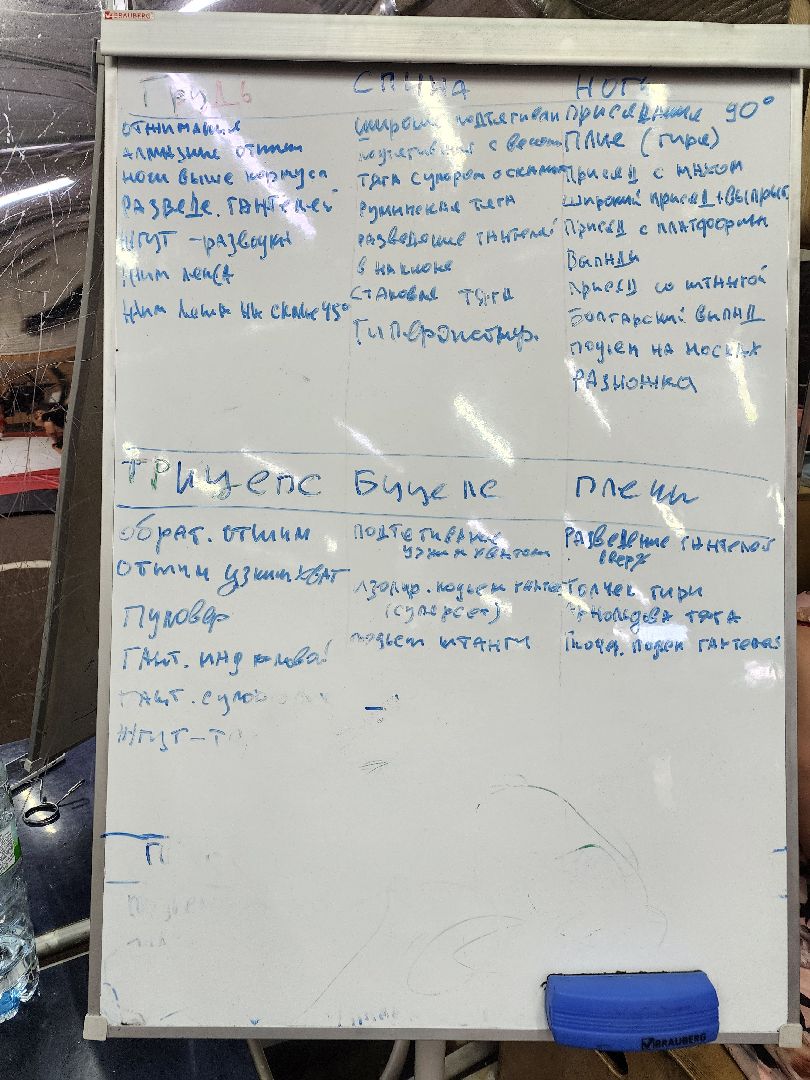 BRAUBERG
Грудь
отжимания
алмазные отжим
ноги выше корпуса
РАЗВЕДЕ. ГАНТЕЛЕЙ
ЖГУТ - разводки
Жим лежа
Жим лежа на скамье 45°
СПИНА
широкие подтягиван
подтягивания с весом
тяга супером о скамью
Румынская тяга
разведение гантелей
в наклоне
СТАНОВАЯ ТЯГА
Гиперэкстнр.
НОГИ
приседание 90°
ПЛИЕ (гиря)
присяд с махом
широкий присяд + выпрыг
Присяд с платформы
Выпады
присяд со штангой
Болгарский выпад
подъем на носках
РАЗНОЖКА
ТРИЦЕПС
обрат. отжим
отжим узким хват
Пуловер
ГАНТ. ИНД головой
ГАНТ. супов
ЖГУТ-Т
БИЦЕПС
подтягивание
узким хватом
Изолир. подъем ганте
(суперсет)
подъем штанги
ПЛЕЧИ
РАЗВЕДЕНИЕ гантелей
вверх
Толчек гири
Арнольдова тяга
подем гантелей
П
BRAUBERG